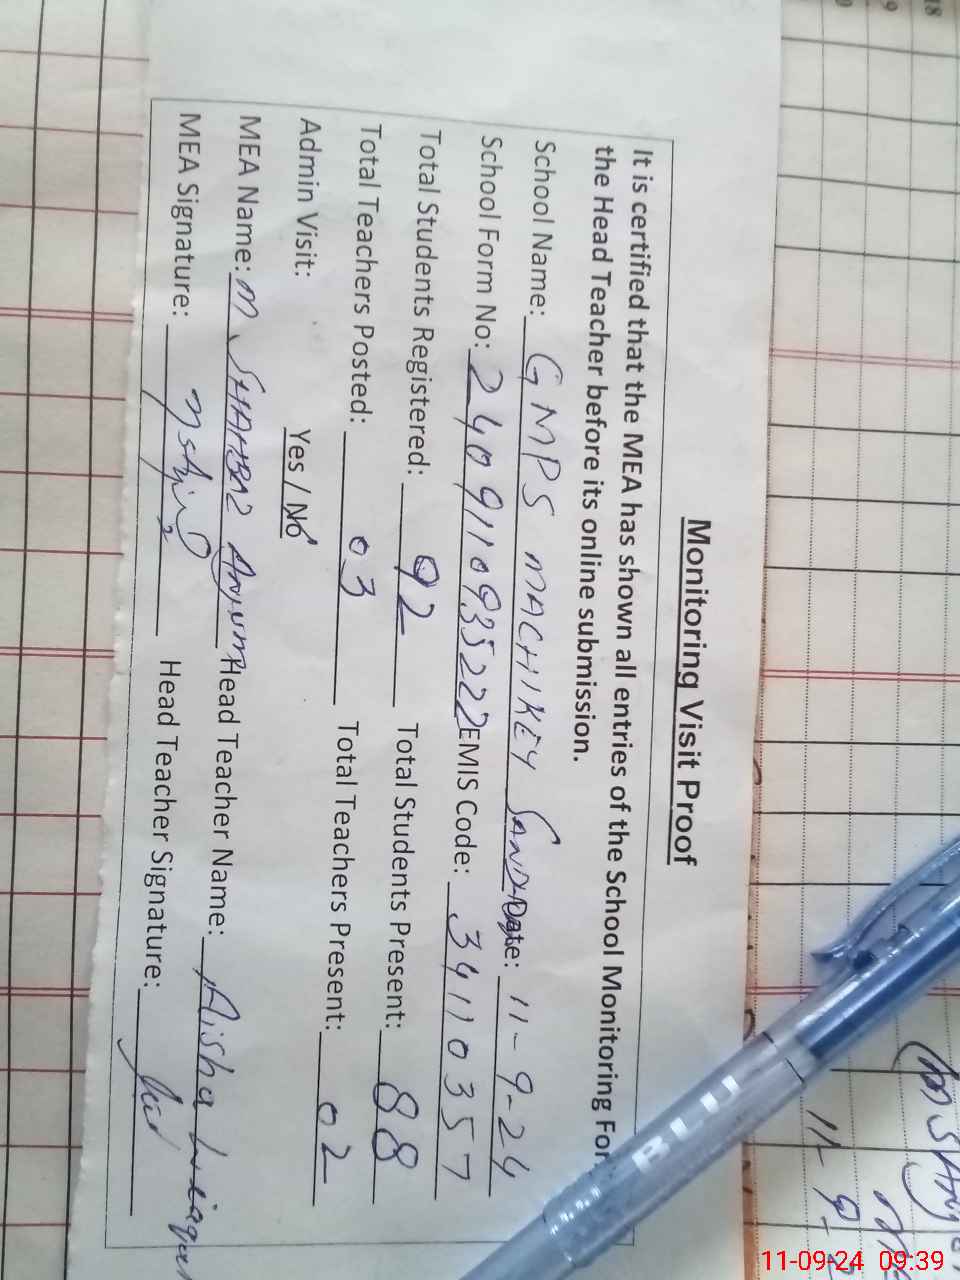 Monitoring Visit Proof
It is certified that the MEA has shown all entries of the School Monitoring For
the Head Teacher before its online submission.
School Name: GMPS MACHIKEY SANDHDate: 11-9-24
School Form No: 2409110935222EMIS Code: 34110357
Total Students Registered: 92 Total Students Present: 88
Total Teachers Posted: 03 Total Teachers Present: 02
Admin Visit: Yes / No
MEA Name: M. SHAHBAZ Anjum Head Teacher Name: Aisha Liaqat
MEA Signature: Head Teacher Signature:
BLU
11-9-2
18
9
11-09-24 09:39